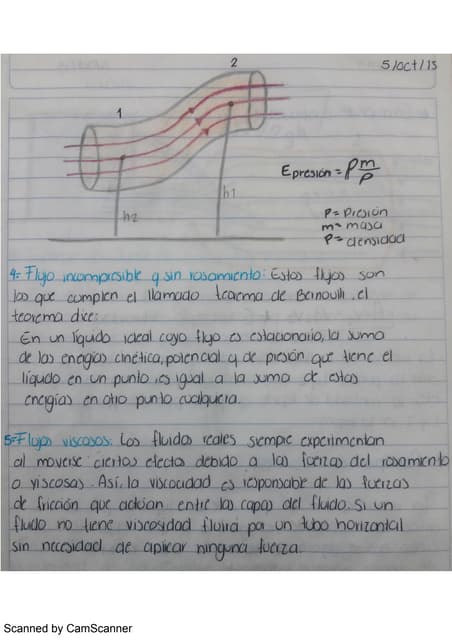 5/oct/15
2
1
h1
h2
Epresión = P m/ρ
P= Presión
m= masa
ρ= densidad
4- Flujo incompresible y sin rosamiento: Estos flujos son
los que cumplen el llamado teorema de Bernoulli. el
teorema dice:
En un líquido ideal cuyo flujo es estacionario, la suma
de las energías cinética, potencial y de presión que tiene el
líquido en un punto, es igual a la suma de estas
energías en otro punto cualquiera.
5- Flujos viscosos: Los fluidos reales siempre experimentan
al moverse ciertos efecto debido a las fuerzas del rosamiento
o viscosas. Así, la viscocidad es responsable de las fuerzas
de fricción que actúan entre las capas del fluido. Si un
fluido no tiene viscosidad fluirá por un tubo horizontal
sin necesidad de aplicar ninguna fuerza.
Scanned by CamScanner